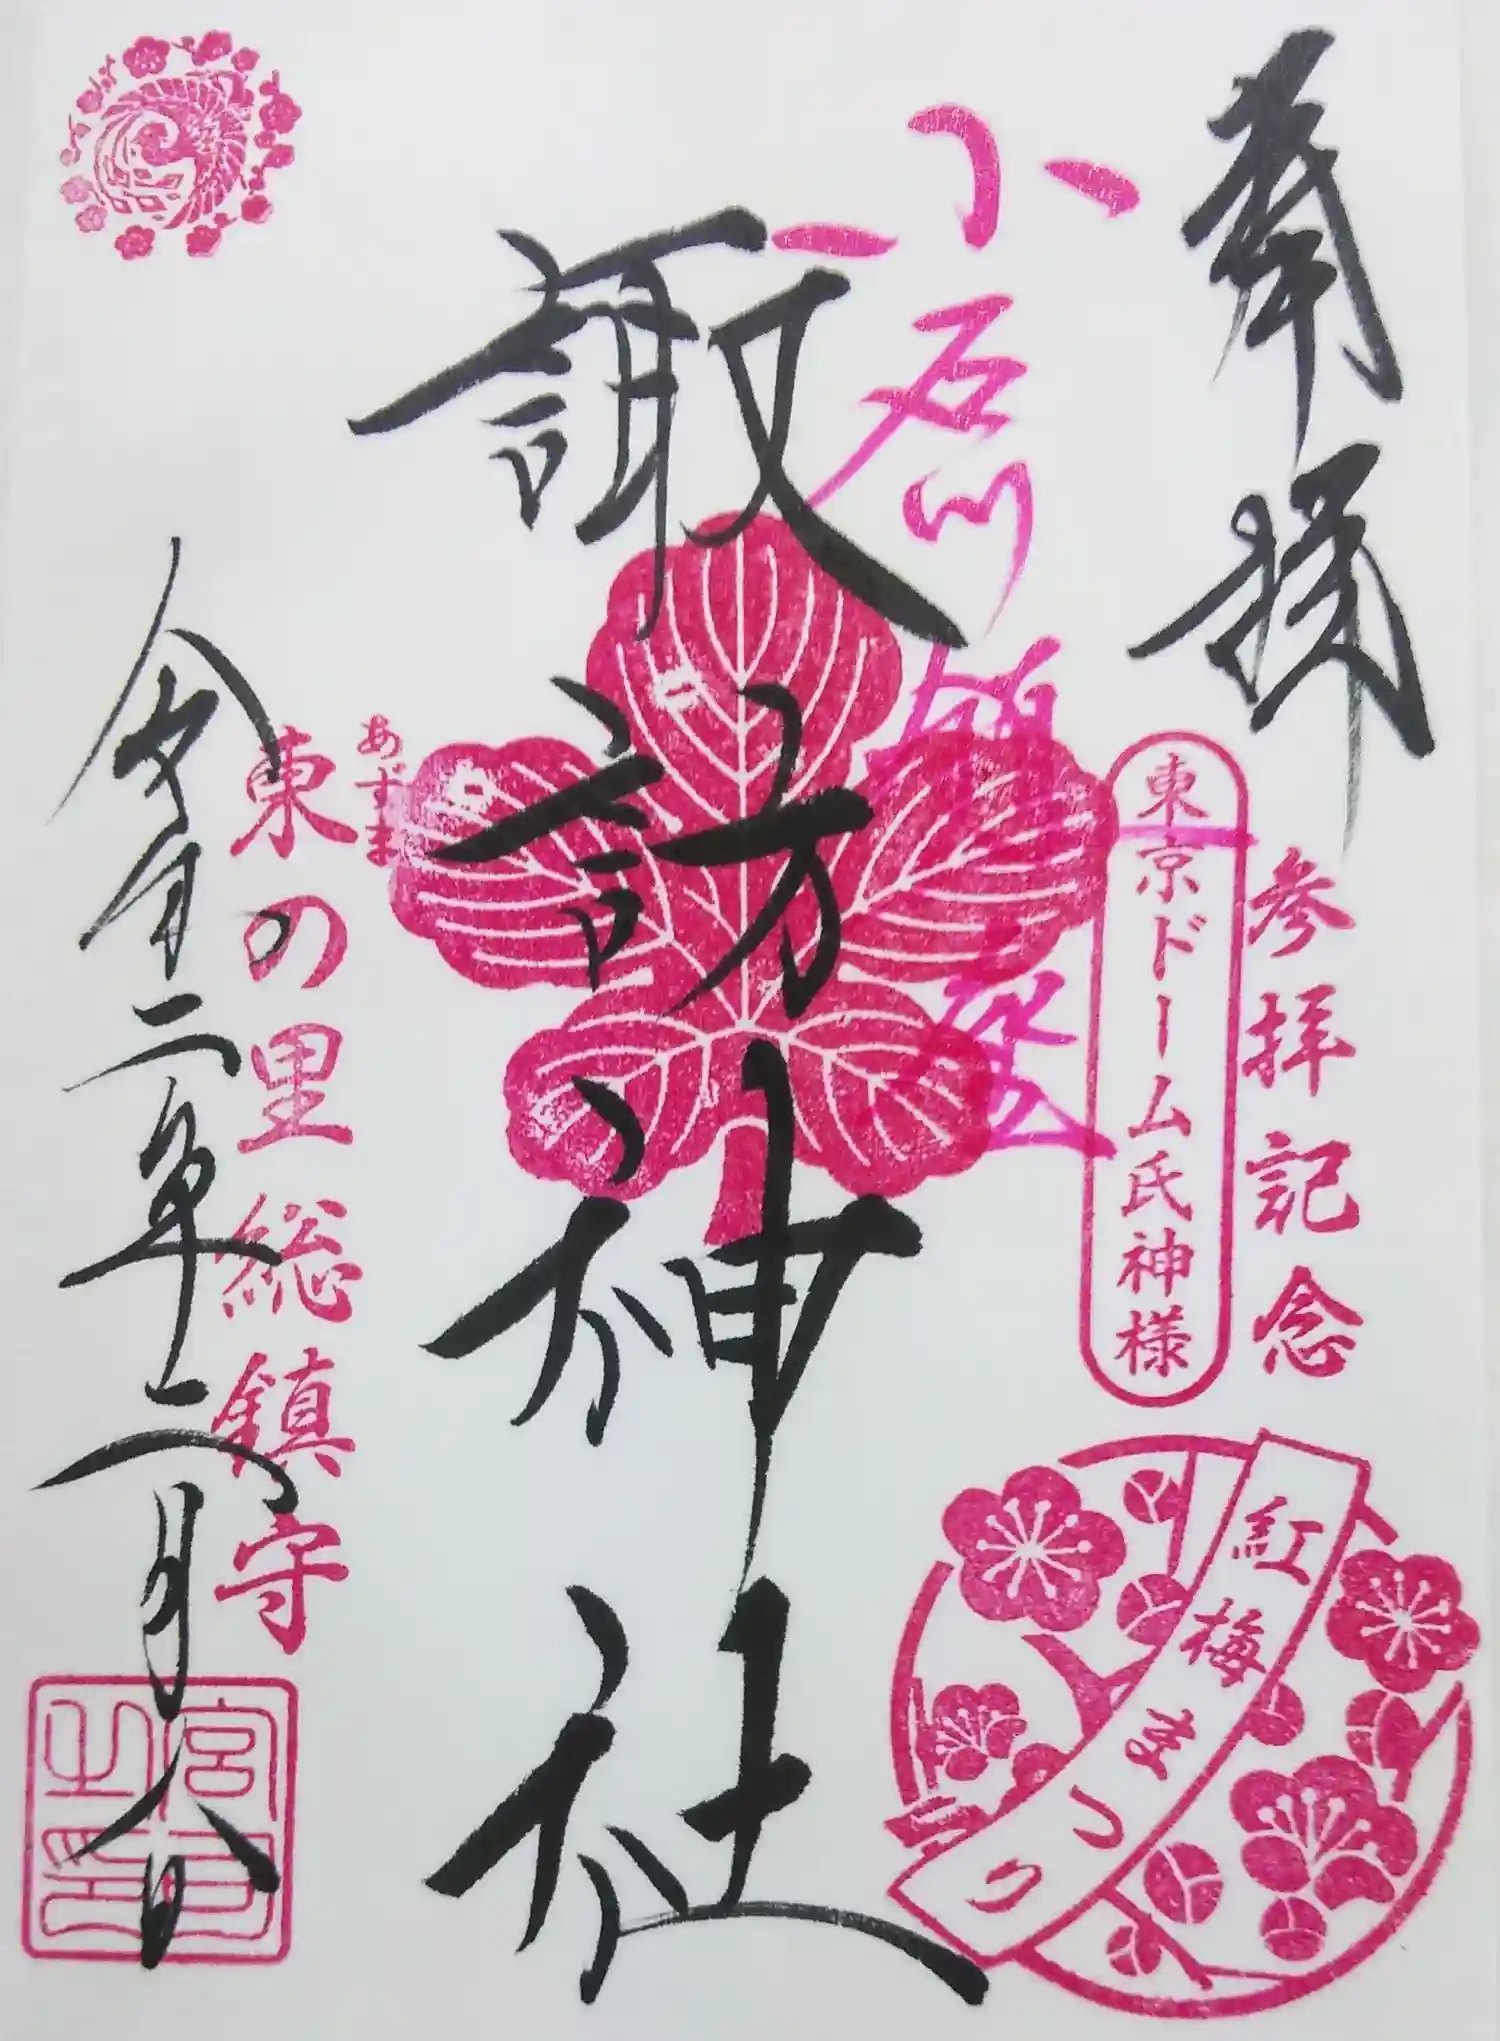 奉拝
参拝記念
東京ドーム氏神様
紅梅まつり
小石川鎮護
諏訪神社
あずま
東の里総鎮守
令和二年二月八日
宮司之印